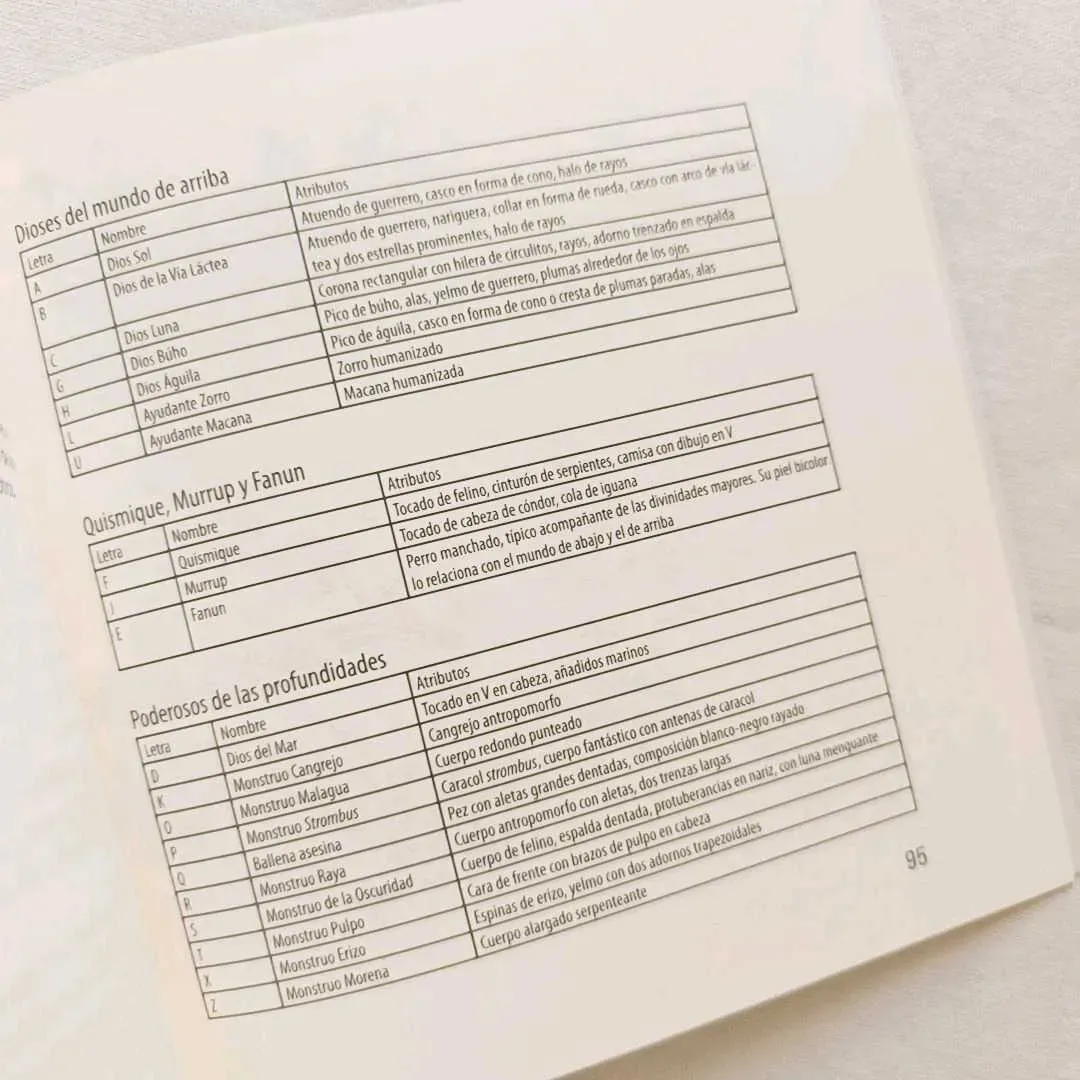 Dioses del mundo de arriba
Letra Nombre Atributos
A Dios Sol Atuendo de guerrero, casco en forma de cono, halo de rayos
B Dios de la Vía Láctea Atuendo de guerrero, nariguera, collar en forma de rueda, casco con arco de vía lác-
tea y dos estrellas prominentes, halo de rayos
C Dios Luna Corona rectangular con hilera de circulitos, rayos, adorno trenzado en espalda
G Dios Búho Pico de búho, alas, yelmo de guerrero, plumas alrededor de los ojos
H Dios Águila Pico de águila, casco en forma de cono o cresta de plumas paradas, alas
L Ayudante Zorro Zorro humanizado
U Ayudante Macana Macana humanizada
Quismique, Murrup y Fanun
Letra Nombre Atributos
F Quismique Tocado de felino, cinturón de serpientes, camisa con dibujo en V
J Murrup Tocado de cabeza de cóndor, cola de iguana
E Fanun Perro manchado, típico acompañante de las divinidades mayores. Su piel bicolor
lo relaciona con el mundo de abajo y el de arriba
Poderosos de las profundidades
Letra Nombre Atributos
D Dios del Mar Tocado en V en cabeza, añadidos marinos
K Monstruo Cangrejo Cangrejo antropomorfo
O Monstruo Malagua Cuerpo redondo punteado
P Monstruo Strombus Caracol strombus, cuerpo fantástico con antenas de caracol
Q Ballena asesina Pez con aletas grandes dentadas, composición blanco-negro rayado
R Monstruo Raya Cuerpo antropomorfo con aletas, dos trenzas largas
S Monstruo de la Oscuridad Cuerpo de felino, espalda dentada, protuberancias en nariz, con luna menguante
T Monstruo Pulpo Cara de frente con brazos de pulpo en cabeza
X Monstruo Erizo Espinas de erizo, yelmo con dos adornos trapezoidales
Z Monstruo Morena Cuerpo alargado serpenteante
95